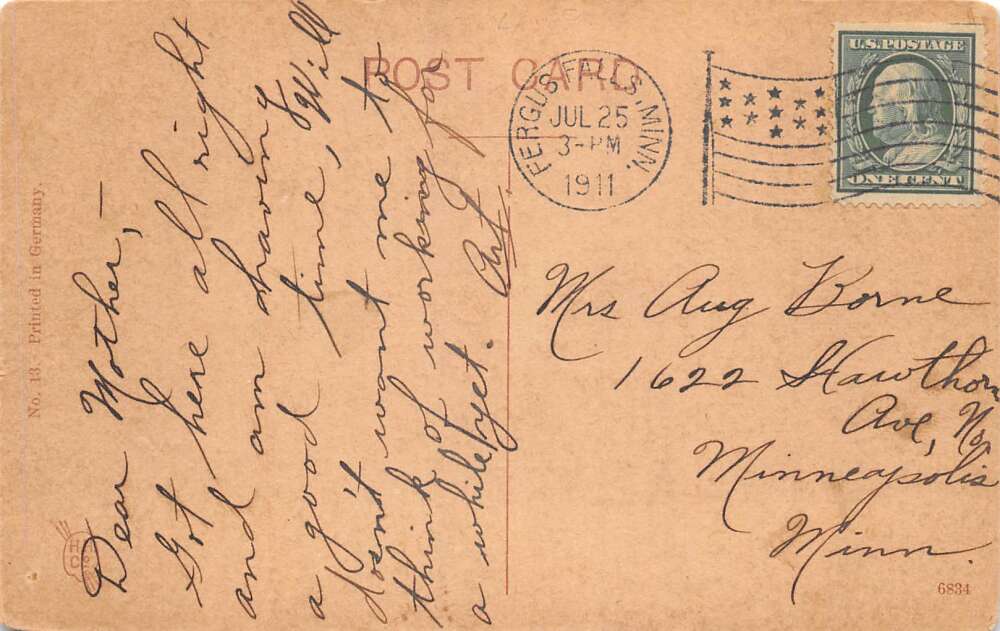 POST CARD
FERGUS FALLS, MINN.
JUL 25
3-PM
1911
U.S. POSTAGE
ONE CENT
No. 13. Printed in Germany.
Dear Mother,—
Got here all right
and am having
a good time, Will
dosn't want me to
think of working for
a while yet. Art
Mrs Aug Borne
1622 Hawthorn
Ave, No.
Minneapolis
Minn.
6834